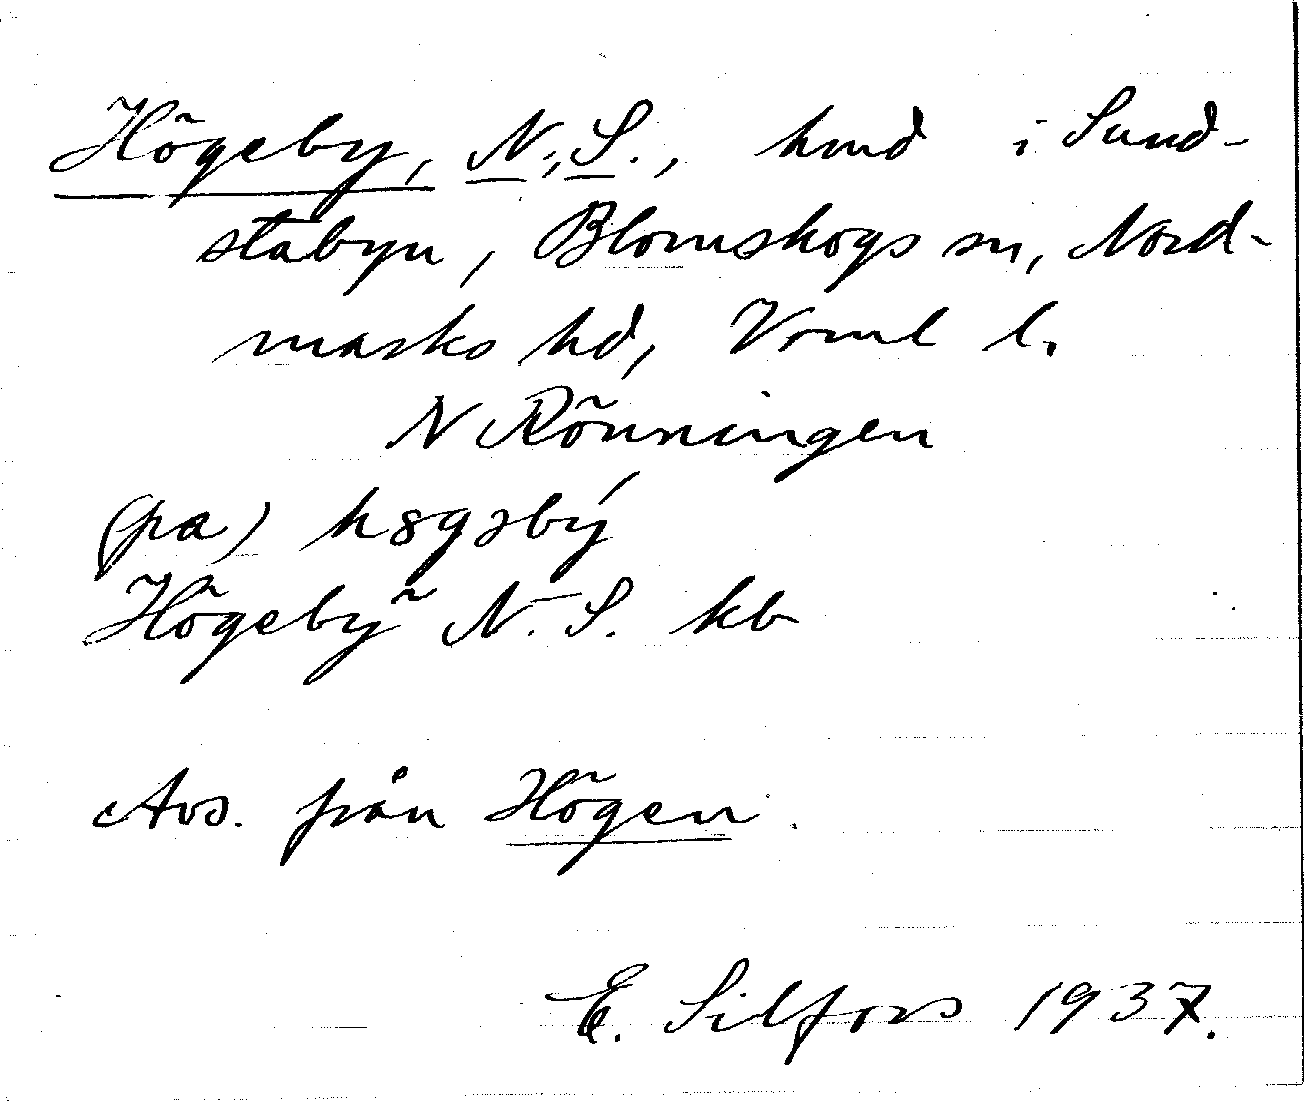 Högeby, N.,S., hmd i Sund-
stabyn, Blomskogs sn, Nord-
marks hd, Vrml l.
N Rönningen
(pα) hȣgəbý
Högeby N. S. kb
Avs. från Högen.
E. Silfors 1937.